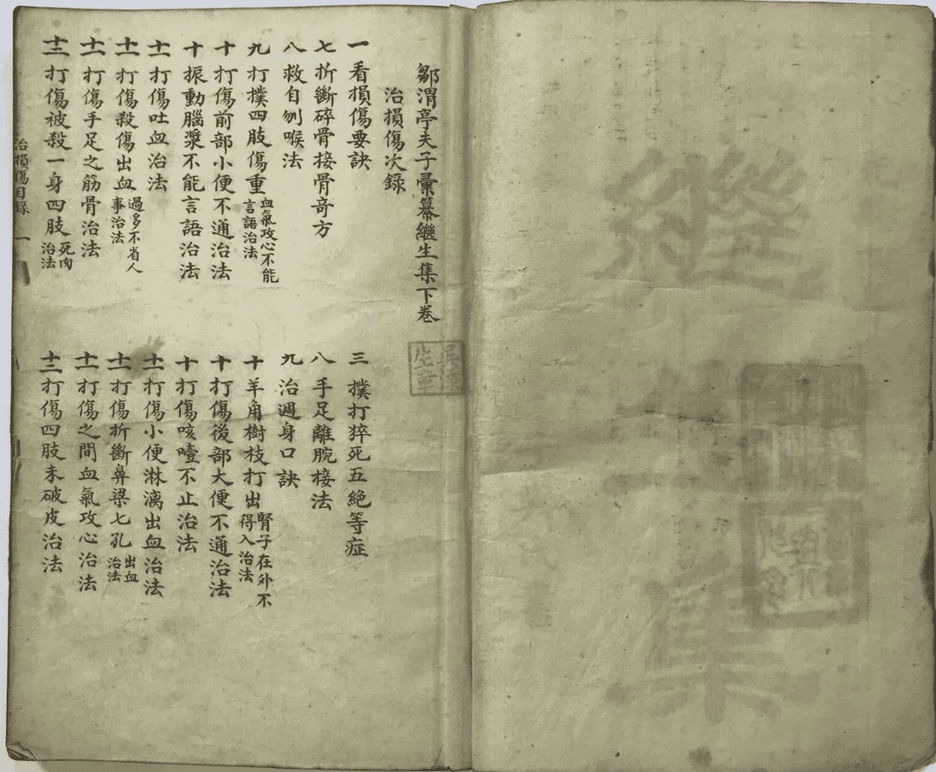 繼生集
鄒渭亭夫子彚纂繼生集下卷
治損傷次錄
一看損傷要訣 三撲打猝死五絕等症
七折斷碎骨接骨奇方 八手足離腕接法
八救自刎喉法 九治週身口訣
九打撲四肢傷重血氣攻心不能言語治法 十羊角樹枝打出腎子在外不得入治法
十打傷前部小便不通治法 十打傷後部大便不通治法
十振動腦漿不能言語治法 十打傷咳噎不止治法
十一打傷吐血治法 十一打傷小便淋漓出血治法
十一打傷殺傷出血過多不省人事治法 十一打傷折斷鼻梁七孔出血治法
十一打傷手足之筋骨治法 十一打傷之間血氣攻心治法
十二打傷被殺一身四肢死肉治法 十三打傷四肢未破皮治法
治損傷目錄 一